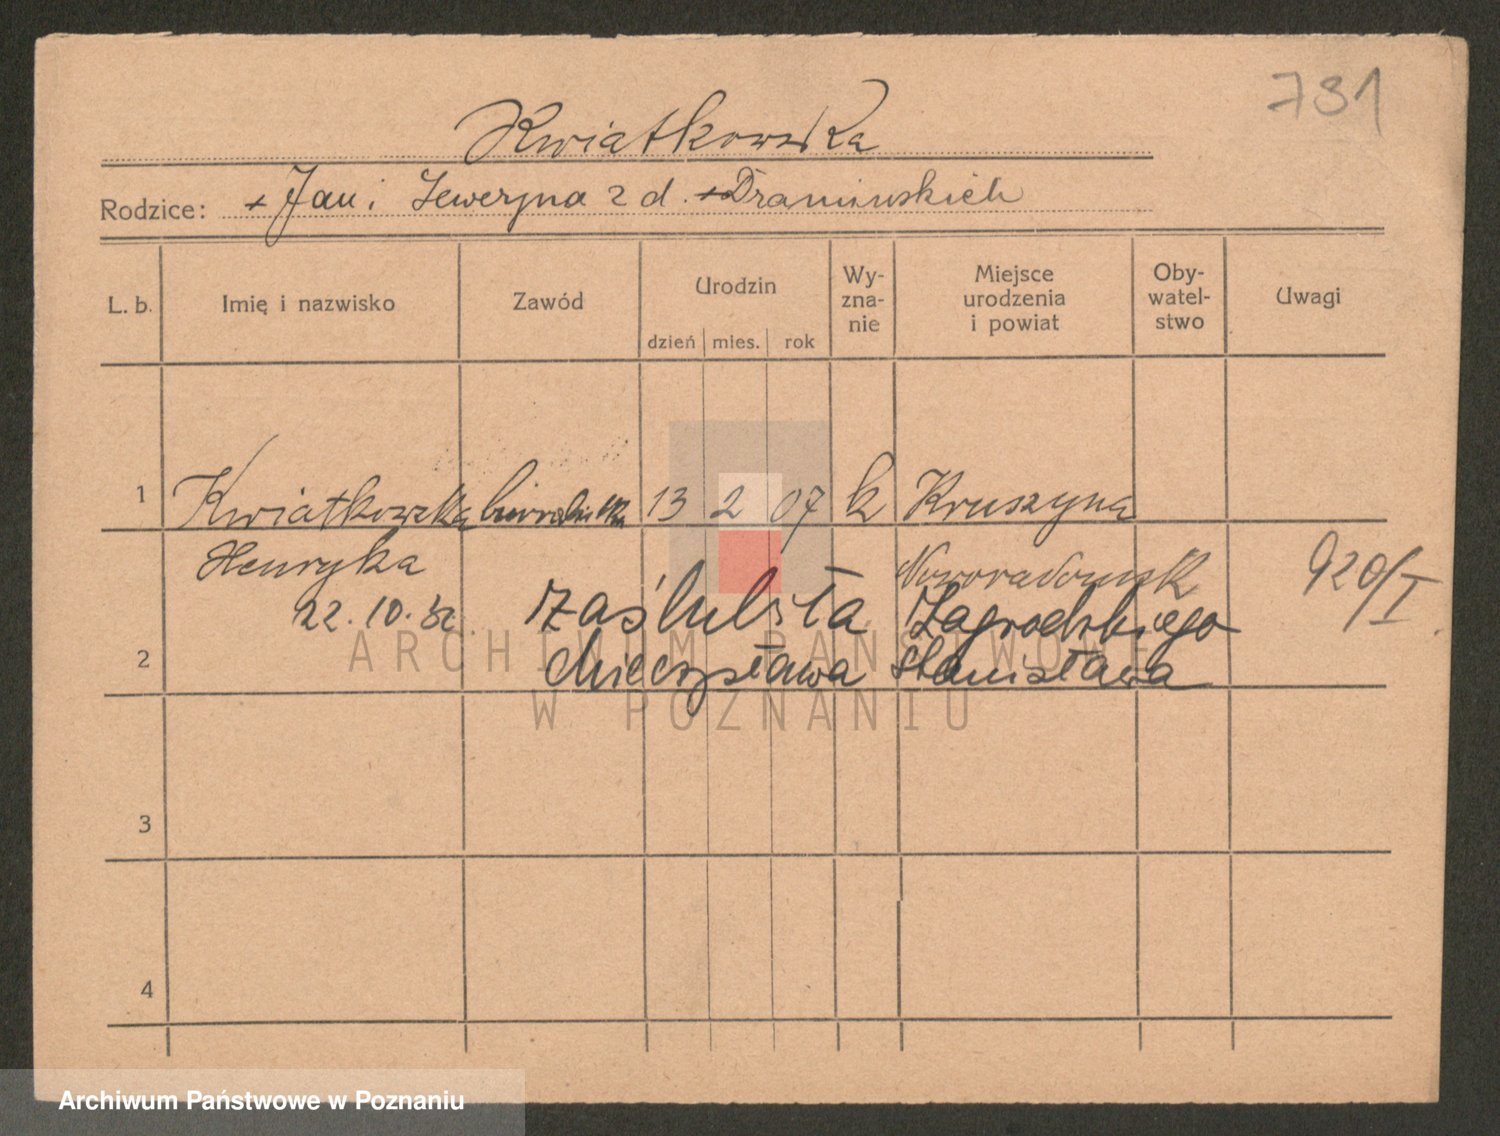 731
Kwiatkowska
Rodzice: + Jan i Seweryna z d. + Dramińskich
L. b. Imię i nazwisko Zawód Urodzin dzień mies. rok Wy-zna-nie Miejsce urodzenia i powiat Oby-watel-stwo Uwagi
1 Kwiatkowska biuralistka 13 2 07 k Kruszyna
Henryka Noworadomsk 920/I
22.10.32 zaślubiła Zagrodzkiego
2 Mieczysława Stanisława
3
4
ARCHIWUM PAŃSTWOWE
W POZNANIU
Archiwum Państwowe w Poznaniu